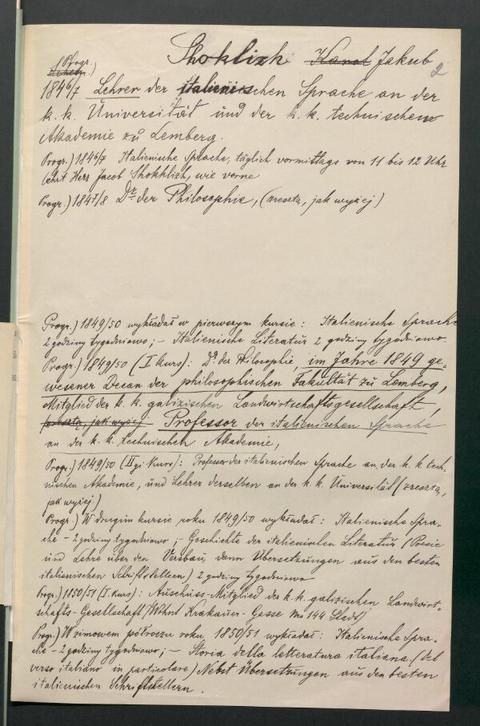 Shoklizh Karol Jakub
2
(Progr.)
1846/7 Lehrer der italienischen Sprache an der
k. k. Universität und der k. k. technischen
Akademie zu Lemberg.
Progr.) 1846/7 Italienische Sprache, täglich vormittags von 11 bis 12 Uhr
lehrt Herr Jacob Shokhlizh, wie vorne
Progr.) 1847/8 Dr. der Philosophie, (zresztą, jak wyżej)
Progr.) 1849/50 wykładał w pierwszym kursie: Italienische Sprache
2 godziny tygodniowo; – Italienische Literatur 2 godziny tygodniowo.
Progr.) 1849/50 (I kurs): Dr. der Philosophie, im Jahre 1849 ge-
wesener Decan der philosophischen Fakultät zu Lemberg,
Mitglied der k. k. galizischen Landwirtschaftsgesellschaft,
zresztą, jak wyżej Professor der italienischen Sprache
an der k. k. technischen Akademie,
Progr.) 1849/50 (II gi kurs): Professor der italienischen Sprache an der k. k. tech-
nischen Akademie, und Lehrer derselben an der k. k. Universität (zresztą,
jak wyżej)
Progr.) W drugim kursie roku 1849/50 wykładał: Italienische Spra-
che – 2 godziny tygodniowo; – Geschichte der italienischen Literatur (Poesie
und Lehre über den Versbau, dann Übersetzungen aus den besten
italienischen Schriftstellern) 2 godziny tygodniowo
Progr.) 1850/51 (I. Kurs): Ausschuss-Mitglied der k. k. galizischen Landwirt-
schafts-Gesellschaft (Wohnt Krakauer-Gasse No 144 Stadt)
Progr.) W zimowem półroczu roku 1850/51 wykładał: Italienische Spra-
che – 2 godziny tygodniowo; – Storia della letteratura italiana (del
verso italiano in particolare) Nebst Übersetzungen aus den besten
italienischen Schriftstellern.